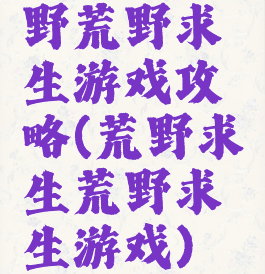 野荒野求
生游戏攻
略(荒野求
生荒野求
生游戏)